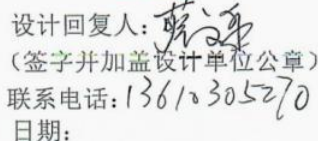 设计回复人:
(签字并加盖设计单位公章)
联系电话:13610305270
日期: